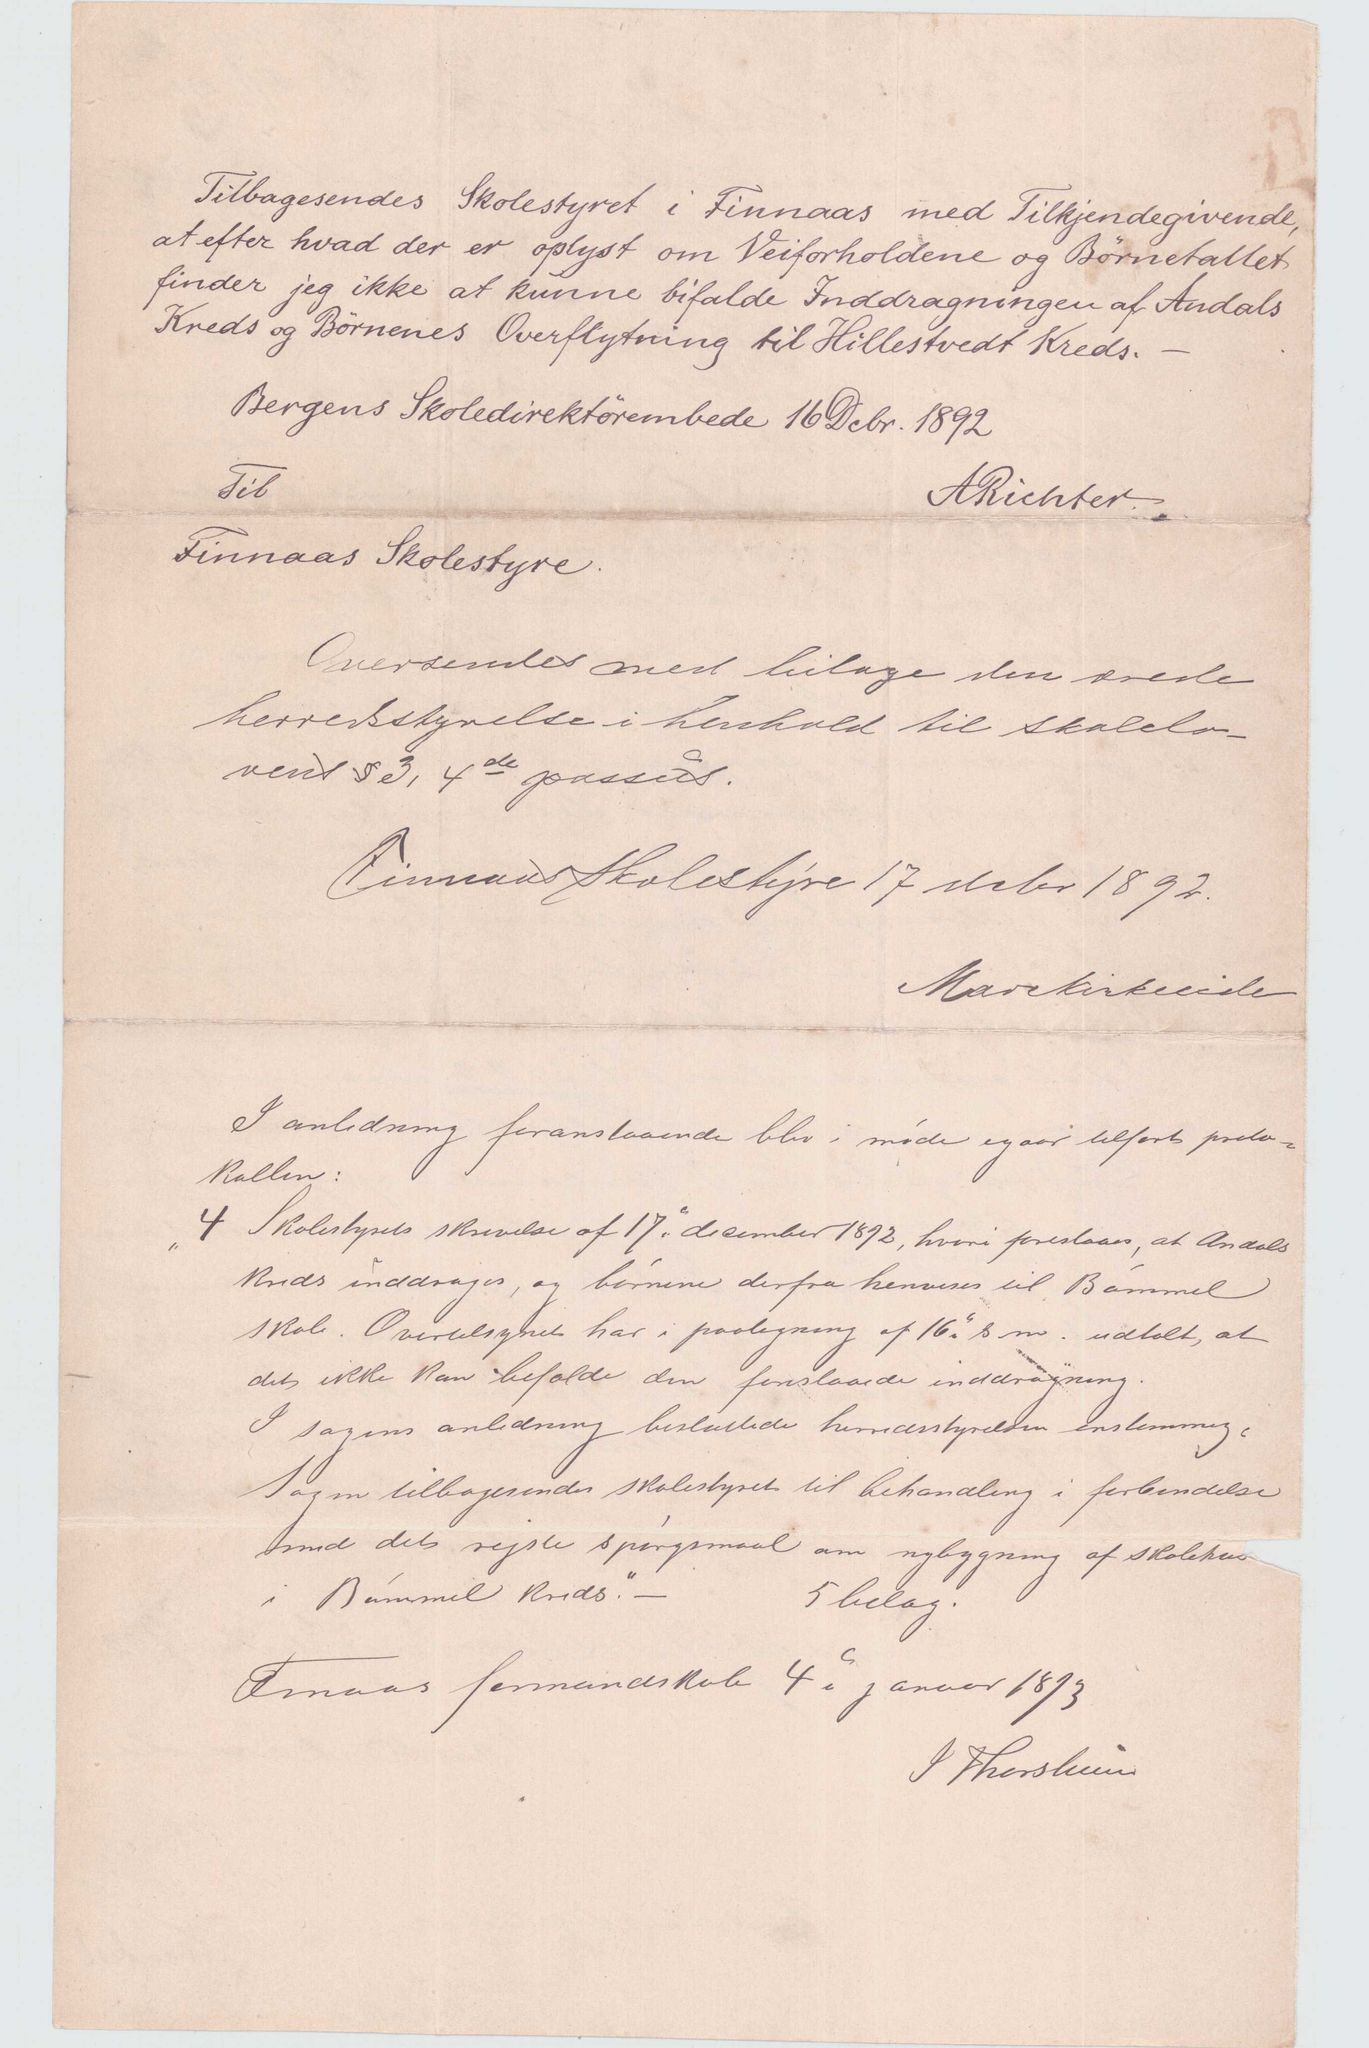 Tilbagesendes Skolestyret i Finnaas med Tilkjendegivende,
at efter hvad der er oplyst om Veiforholdene og Börnetallet
finder jeg ikke at kunne bifalde Inddragningen af Andals
Kreds og Börnenes Overflytning til Hillestvedt Kreds. —
Bergens Skoledirektörembede 16 Decbr. 1892
Til
ARichter.
Finnaas Skolestyre.
Oversendes med bilage den ærede
herredsstyrelse i henhold til skolelo-
vens § 3, 4de passus.
Finnaas Skolestyre 17 decbr 1892.
I anledning foranstaaende blev i møde igaar tilført proto-
kollen:
„4 Skolestyrets skrivelse af 17de december 1892, hvori foreslaaes, at Andals
kreds inddrages, og børnene derfra henvises til Bømmel
skole. Overtilsynet har i paategning af 16de s m. udtalt, at
det ikke kan bifalde den foreslaaede inddragning.
I sagens anledning besluttede herredsstyrelsen enstemmig:
Sagen tilbagesendes skolestyret til behandling i forbindelse
med det rejste spørgsmaal om nybygning af skolehus
i Bømmel kreds." — 5 bilag.
Finaas formandskab 4de januar 1893
J Thorsheim